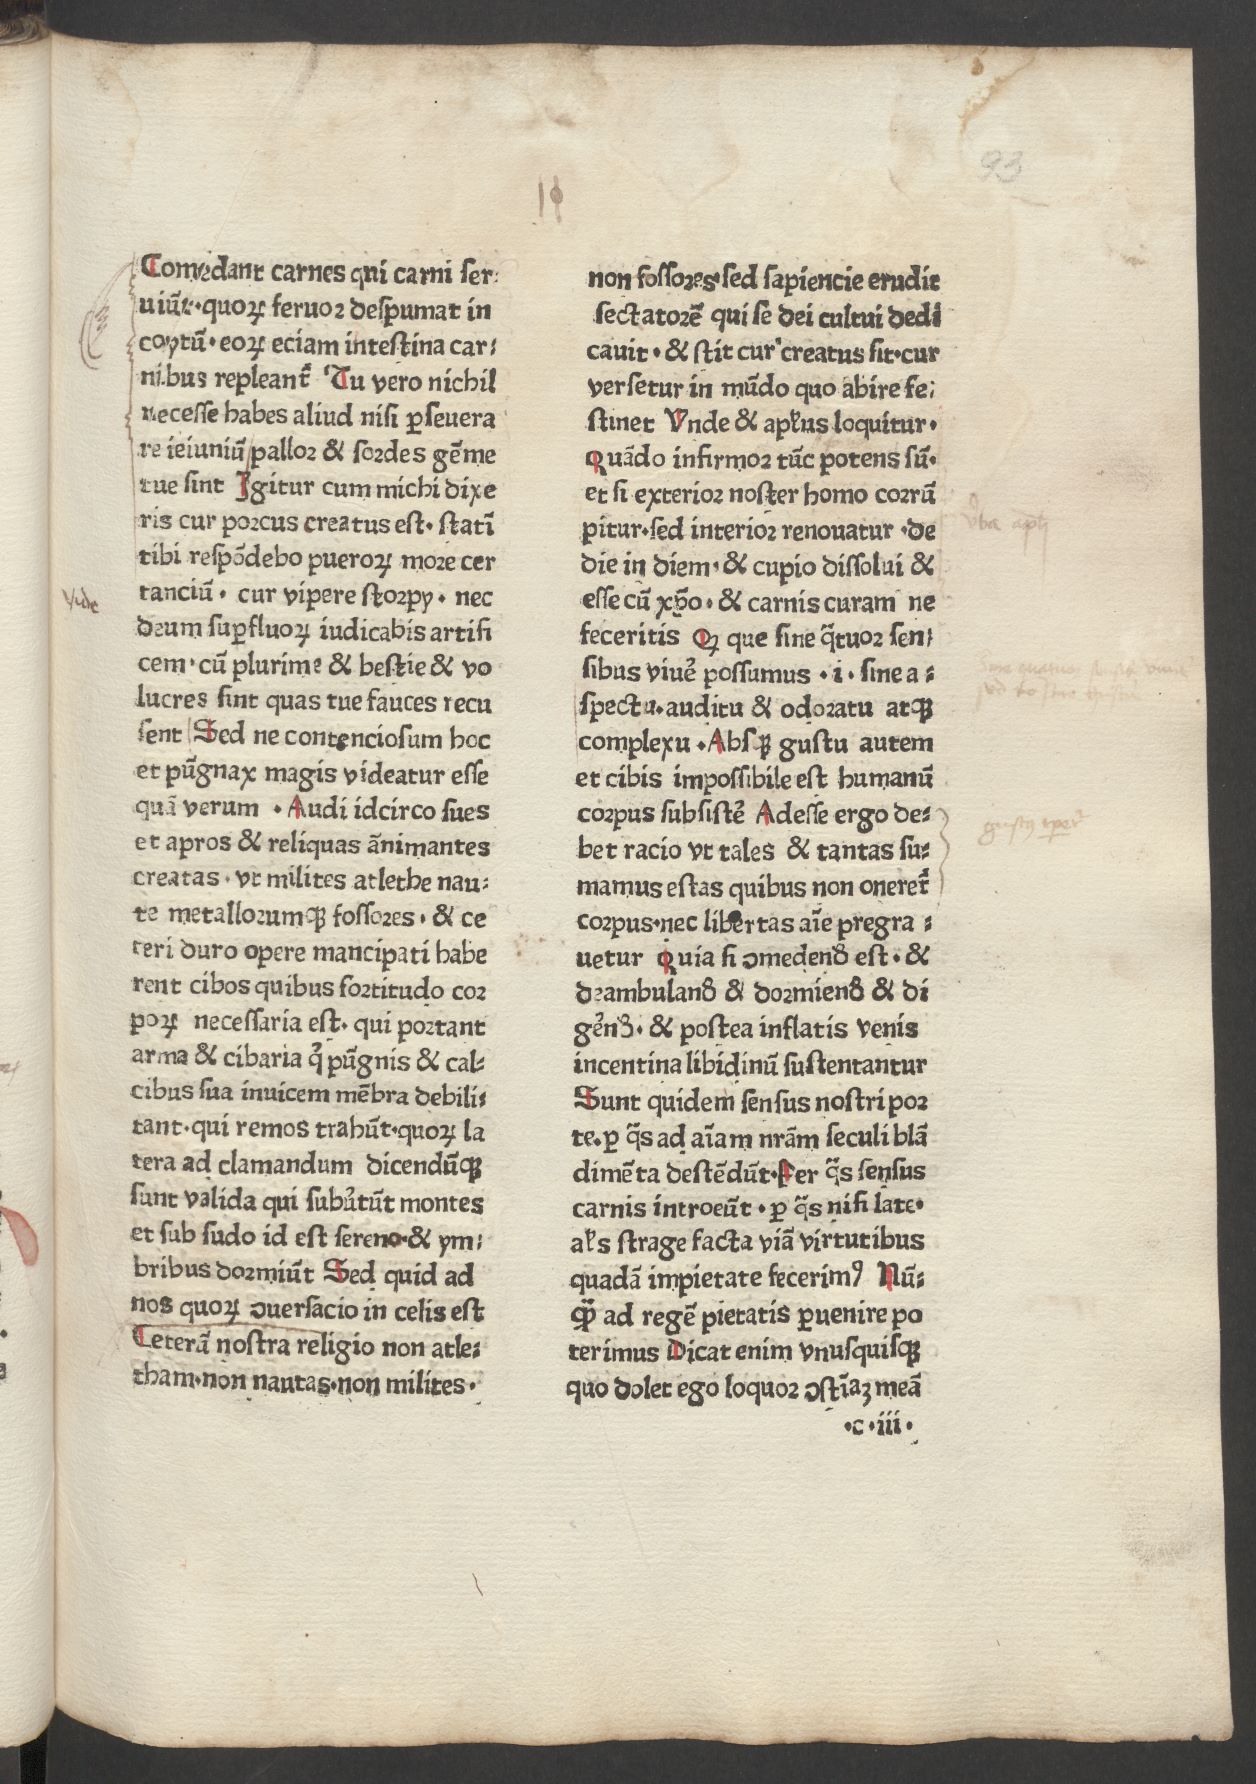 93
Comedant carnes qui carni ser:
uiūt·quoꝝ feruor despumat in
coytū·eoꝝ eciam intestina car:
nibus repleant᷑ Tu vero nichil
necesse habes aliud nisi ꝑseuera
re ieiuniū pallor & sordes gēme
tue sint Igitur cum michi dixe
ris cur porcus creatus est· statī
tibi respōdebo pueroꝝ more cer
tanciū· cur vipere storpy· nec
deum suꝑfluoꝝ iudicabis artifi
cem·cū plurime & bestie & vo
lucres sint quas tue fauces recu
sent Sed ne contenciosum hoc
et pūgnax magis videatur esse
quā verum ·Audi idcirco sues
et apros & reliquas ānimantes
creatas·vt milites atlethe nau:
te metallorumqꝫ fossores· & ce
teri duro opere mancipati habe
rent cibos quibus fortitudo cor
poꝝ necessaria est· qui portant
arma & cibaria q᷑ pūgnis & cal:
cibus sua inuicem mēbra debili:
tant·qui remos trahūt·quoꝝ la
tera ad clamandum dicendūqꝫ
sunt valida qui subu᷑tūt montes
et sub sudo id est sereno·& ym:
bribus dormiūt Sed quid ad
nos quoꝝ ꝯuersacio in celis est
Ceterā nostra religio non atle:
tham·non nautas·non milites·
non fossores·sed sapiencie erudit
sectatorē qui se dei cultui dedi
cauit·& stit cur creatus sit·cur
versetur in mūdo quo abire fe:
stinet Vnde & apl̄us loquitur·
Quādo infirmor tūc potens sū·
et si exterior noster homo corrū
pitur·sed interior renouatur·de
die in diem·& cupio dissolui &
esse cū xp̄o·& carnis curam ne
feceritis Qꝫ que sine q̄tuor sen:
sibus viue᷑ possumus ·i· sine a:
spectu·auditu & odoratu atqꝫ
complexu·Absqꝫ gustu autem
et cibis impossibile est humanū
corpus subsiste᷑ Adesse ergo de:
bet racio vt tales & tantas su:
mamus estas quibus non oneret᷑
corpus·nec libertas aīe pregra:
uetur Quia si ꝯmedend᷑ est·&
deambuland᷑ & dormiend᷑ & di
ge᷑nd᷑·& postea inflatis venis
incentina libidinū sustentantur
Sunt quidem sensus nostri por
te·ꝑ q̄s ad aīam nr̄am seculi blā
dimēta destēdūt·Per q̄s sensus
carnis introeūt·ꝑ q̄s nisi late·
al̄s strage facta viā virtutibus
quadā impietate fecerimꝰ Nū:
qꝫ ad regē pietatis ꝑuenire po
terimus Dicat enim vnusquisqꝫ
quo dolet ego loquor ꝯstīaꝫ meā
·c·iii·